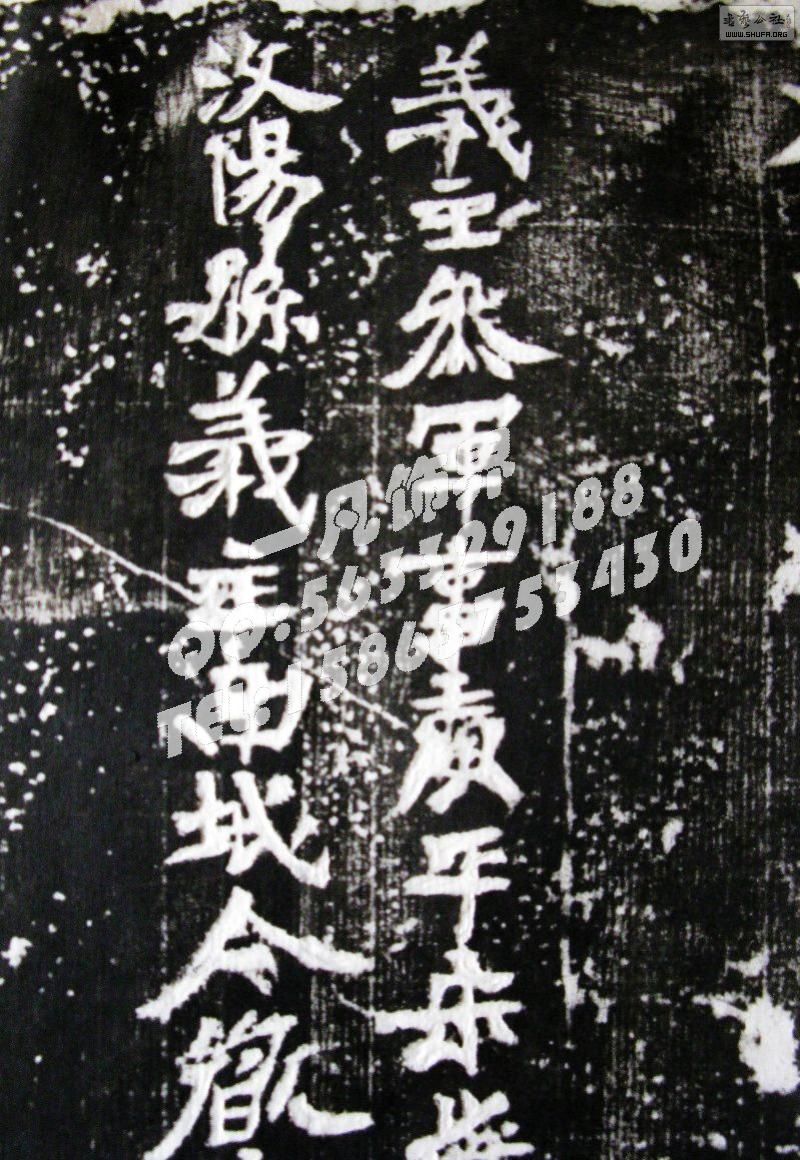 書藝公社
WWW.SHUFA.ORG
義主參軍事平
汝陽縣義主南城令
一凡饰界
QQ:563329188
TEL:15863753430